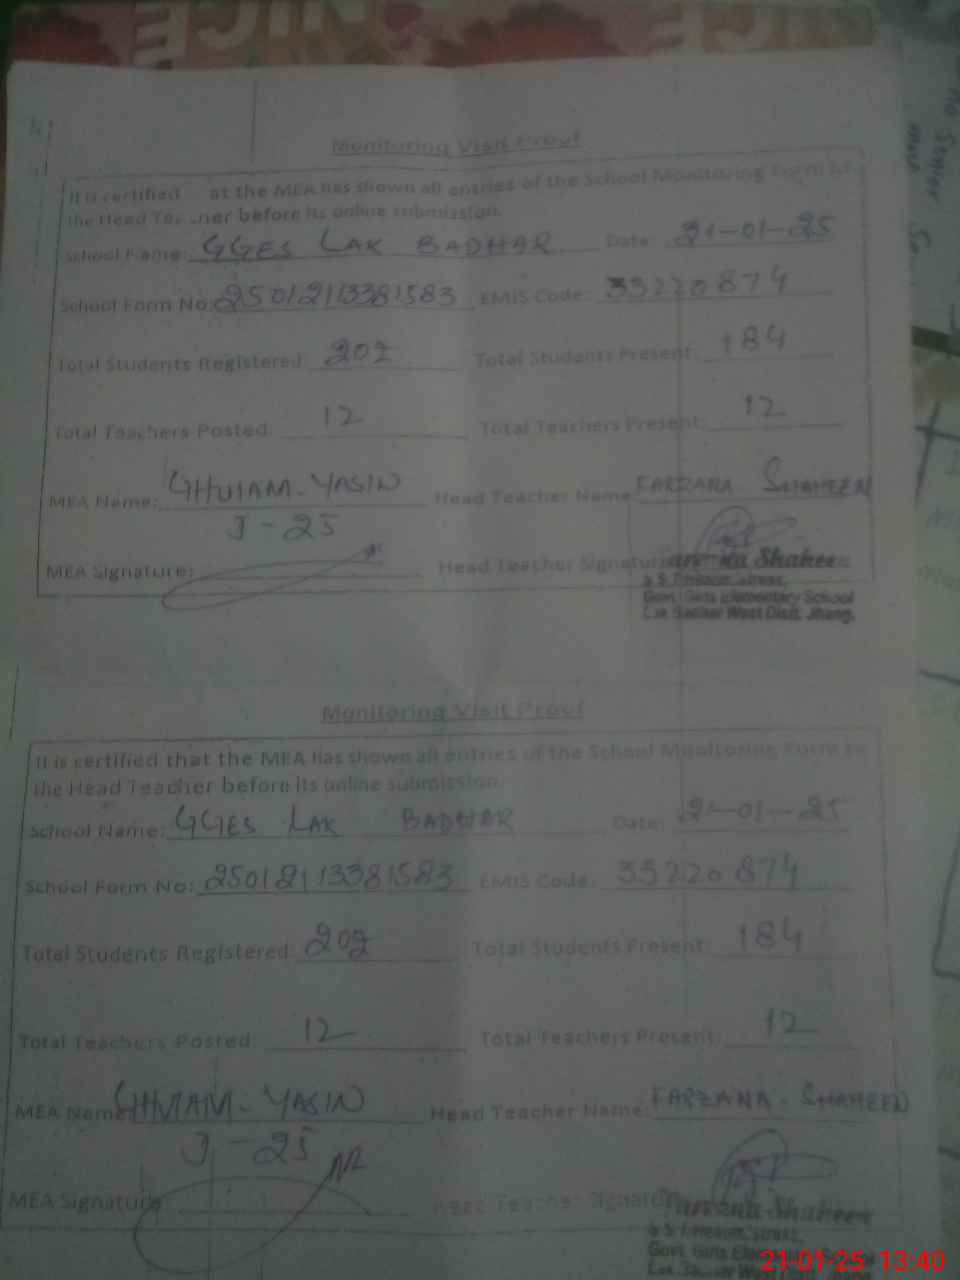 NICE
Monitoring Visit Proof
It is certified at the MEA has shown all entries of the School Monitoring Form to
the Head Teacher before its online submission.
School Name: GGES LAK BADHAR Date: 21-01-25
School Form No: 25012113381583 EMIS Code: 33220874
Total Students Registered: 202 Total Students Present: 184
Total Teachers Posted: 12 Total Teachers Present: 12
MEA Name: GHULAM-YASIN Head Teacher Name: FARZANA SHAHEEN
J-25
MEA Signature: Head Teacher Signature
Shaheen
Govt. Girls Elementary School
Lak Badher West Distt. Jhang.
Monitoring Visit Proof
It is certified that the MEA has shown all entries of the School Monitoring Form to
the Head Teacher before its online submission.
School Name: GGES LAK BADHAR Date: 21-01-25
School Form No: 25012113381583 EMIS Code: 33220874
Total Students Registered: 202 Total Students Present: 184
Total Teachers Posted: 12 Total Teachers Present: 12
MEA Name: GHULAM-YASIN Head Teacher Name: FARZANA-SHAHEEN
J-25
MEA Signature: Head Teacher Signature
Farzana Shaheen
Govt. Girls
21-01-25 13:40